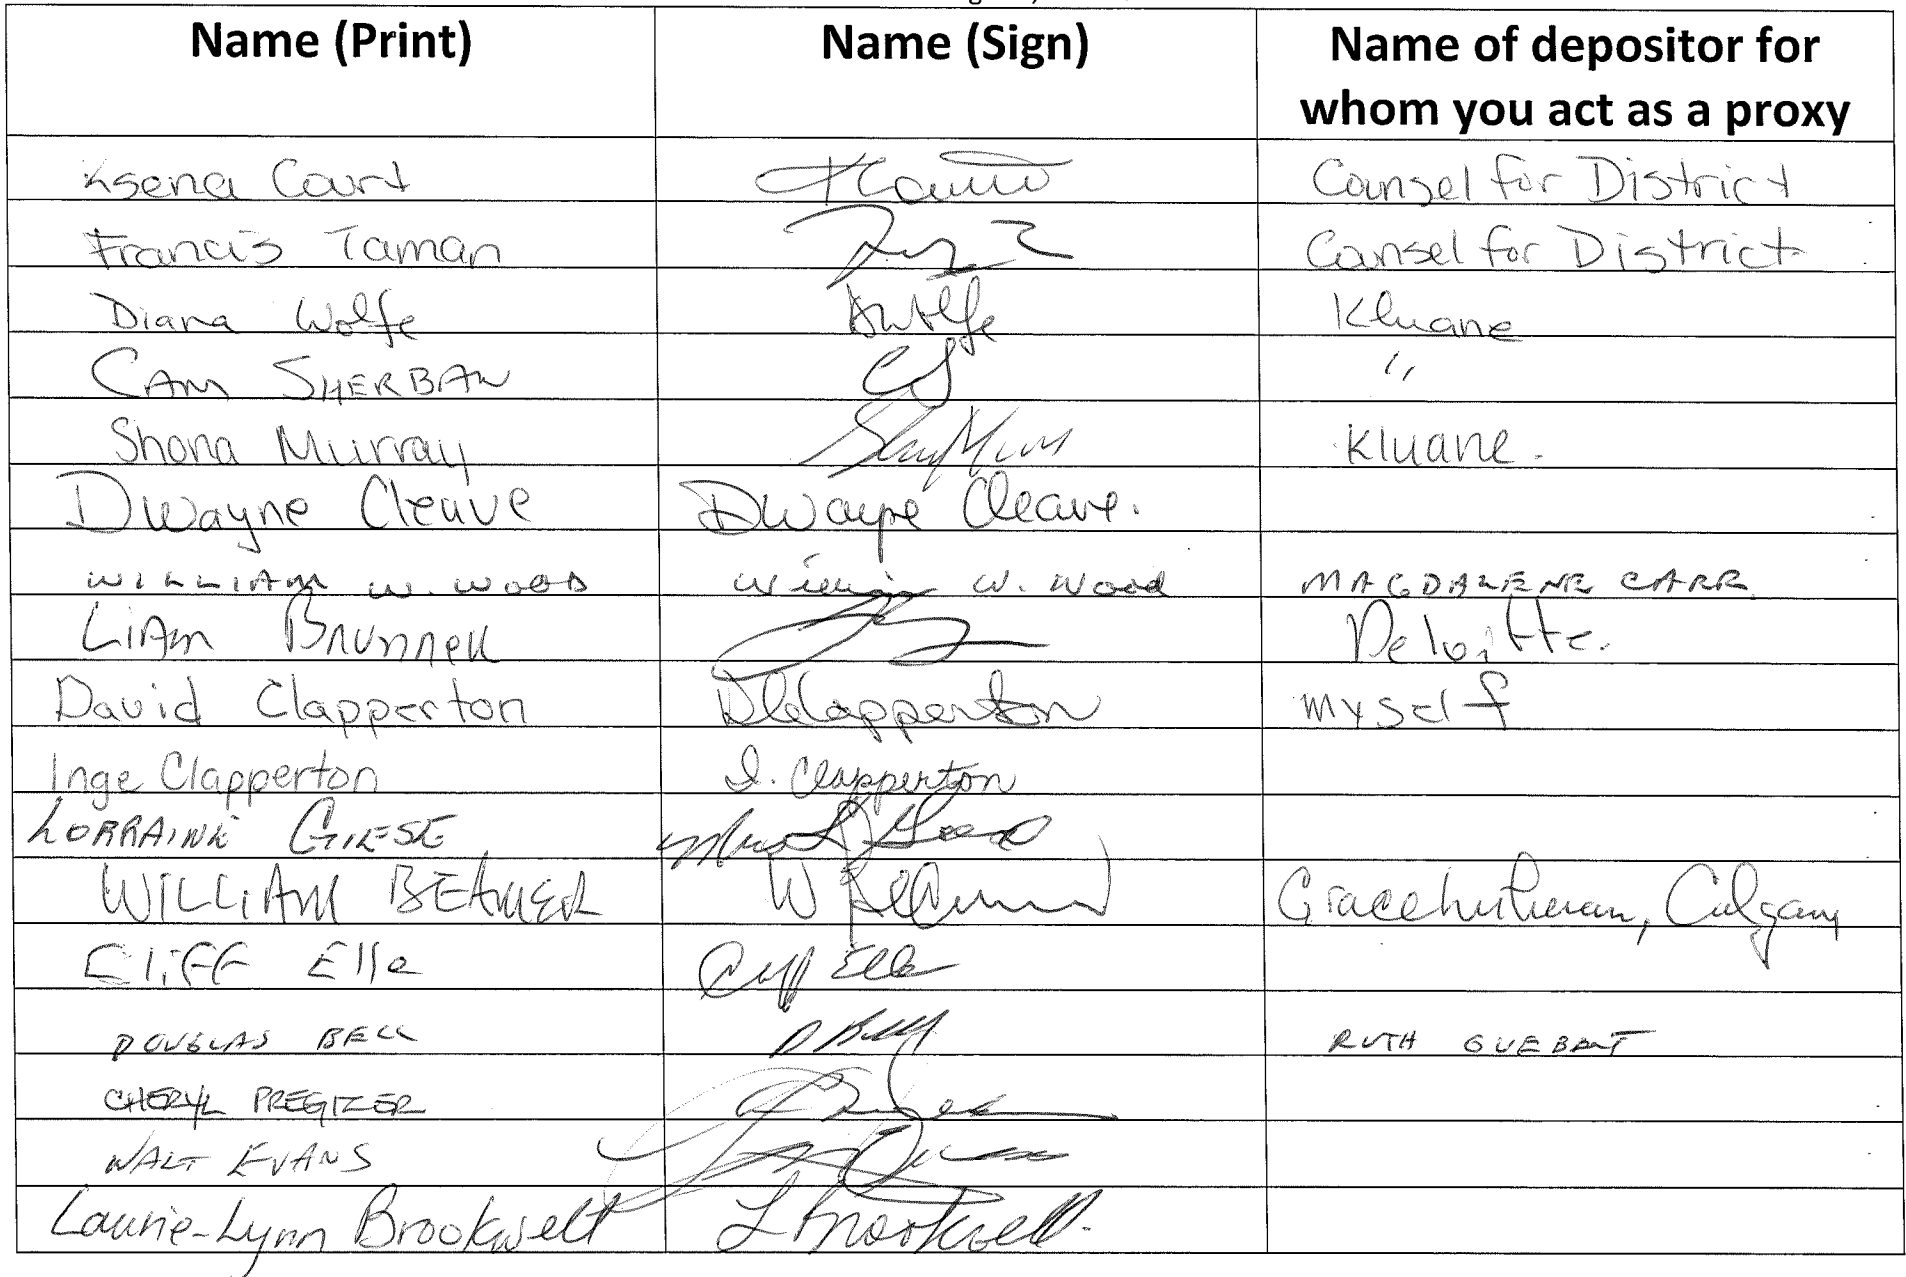 Name (Print) Name (Sign) Name of depositor for
whom you act as a proxy
Ksena Court Counsel for District
Francis Taman Counsel for District
Diana Wolfe DWolfe Kluane
CAM SHERBAN CS "
Shona Murray Kluane.
Dwayne Cleave Dwayne Cleave.
WILLIAM W. WOOD William W. Wood MAGDALENE CARR
LIAM BRUNNER Deloitte.
David Clapperton Clapperton myself
Inge Clapperton I. Clapperton
LORRAINE GIESE
WILLIAM BEAMER Grace Lutheran, Calgary
Cliff Elle Cliff Elle
DOUGLAS BELL D Bell RUTH
CHERYL PREGIZER
WALT EVANS
Laurie-Lynn Brookwell L Brookwell.